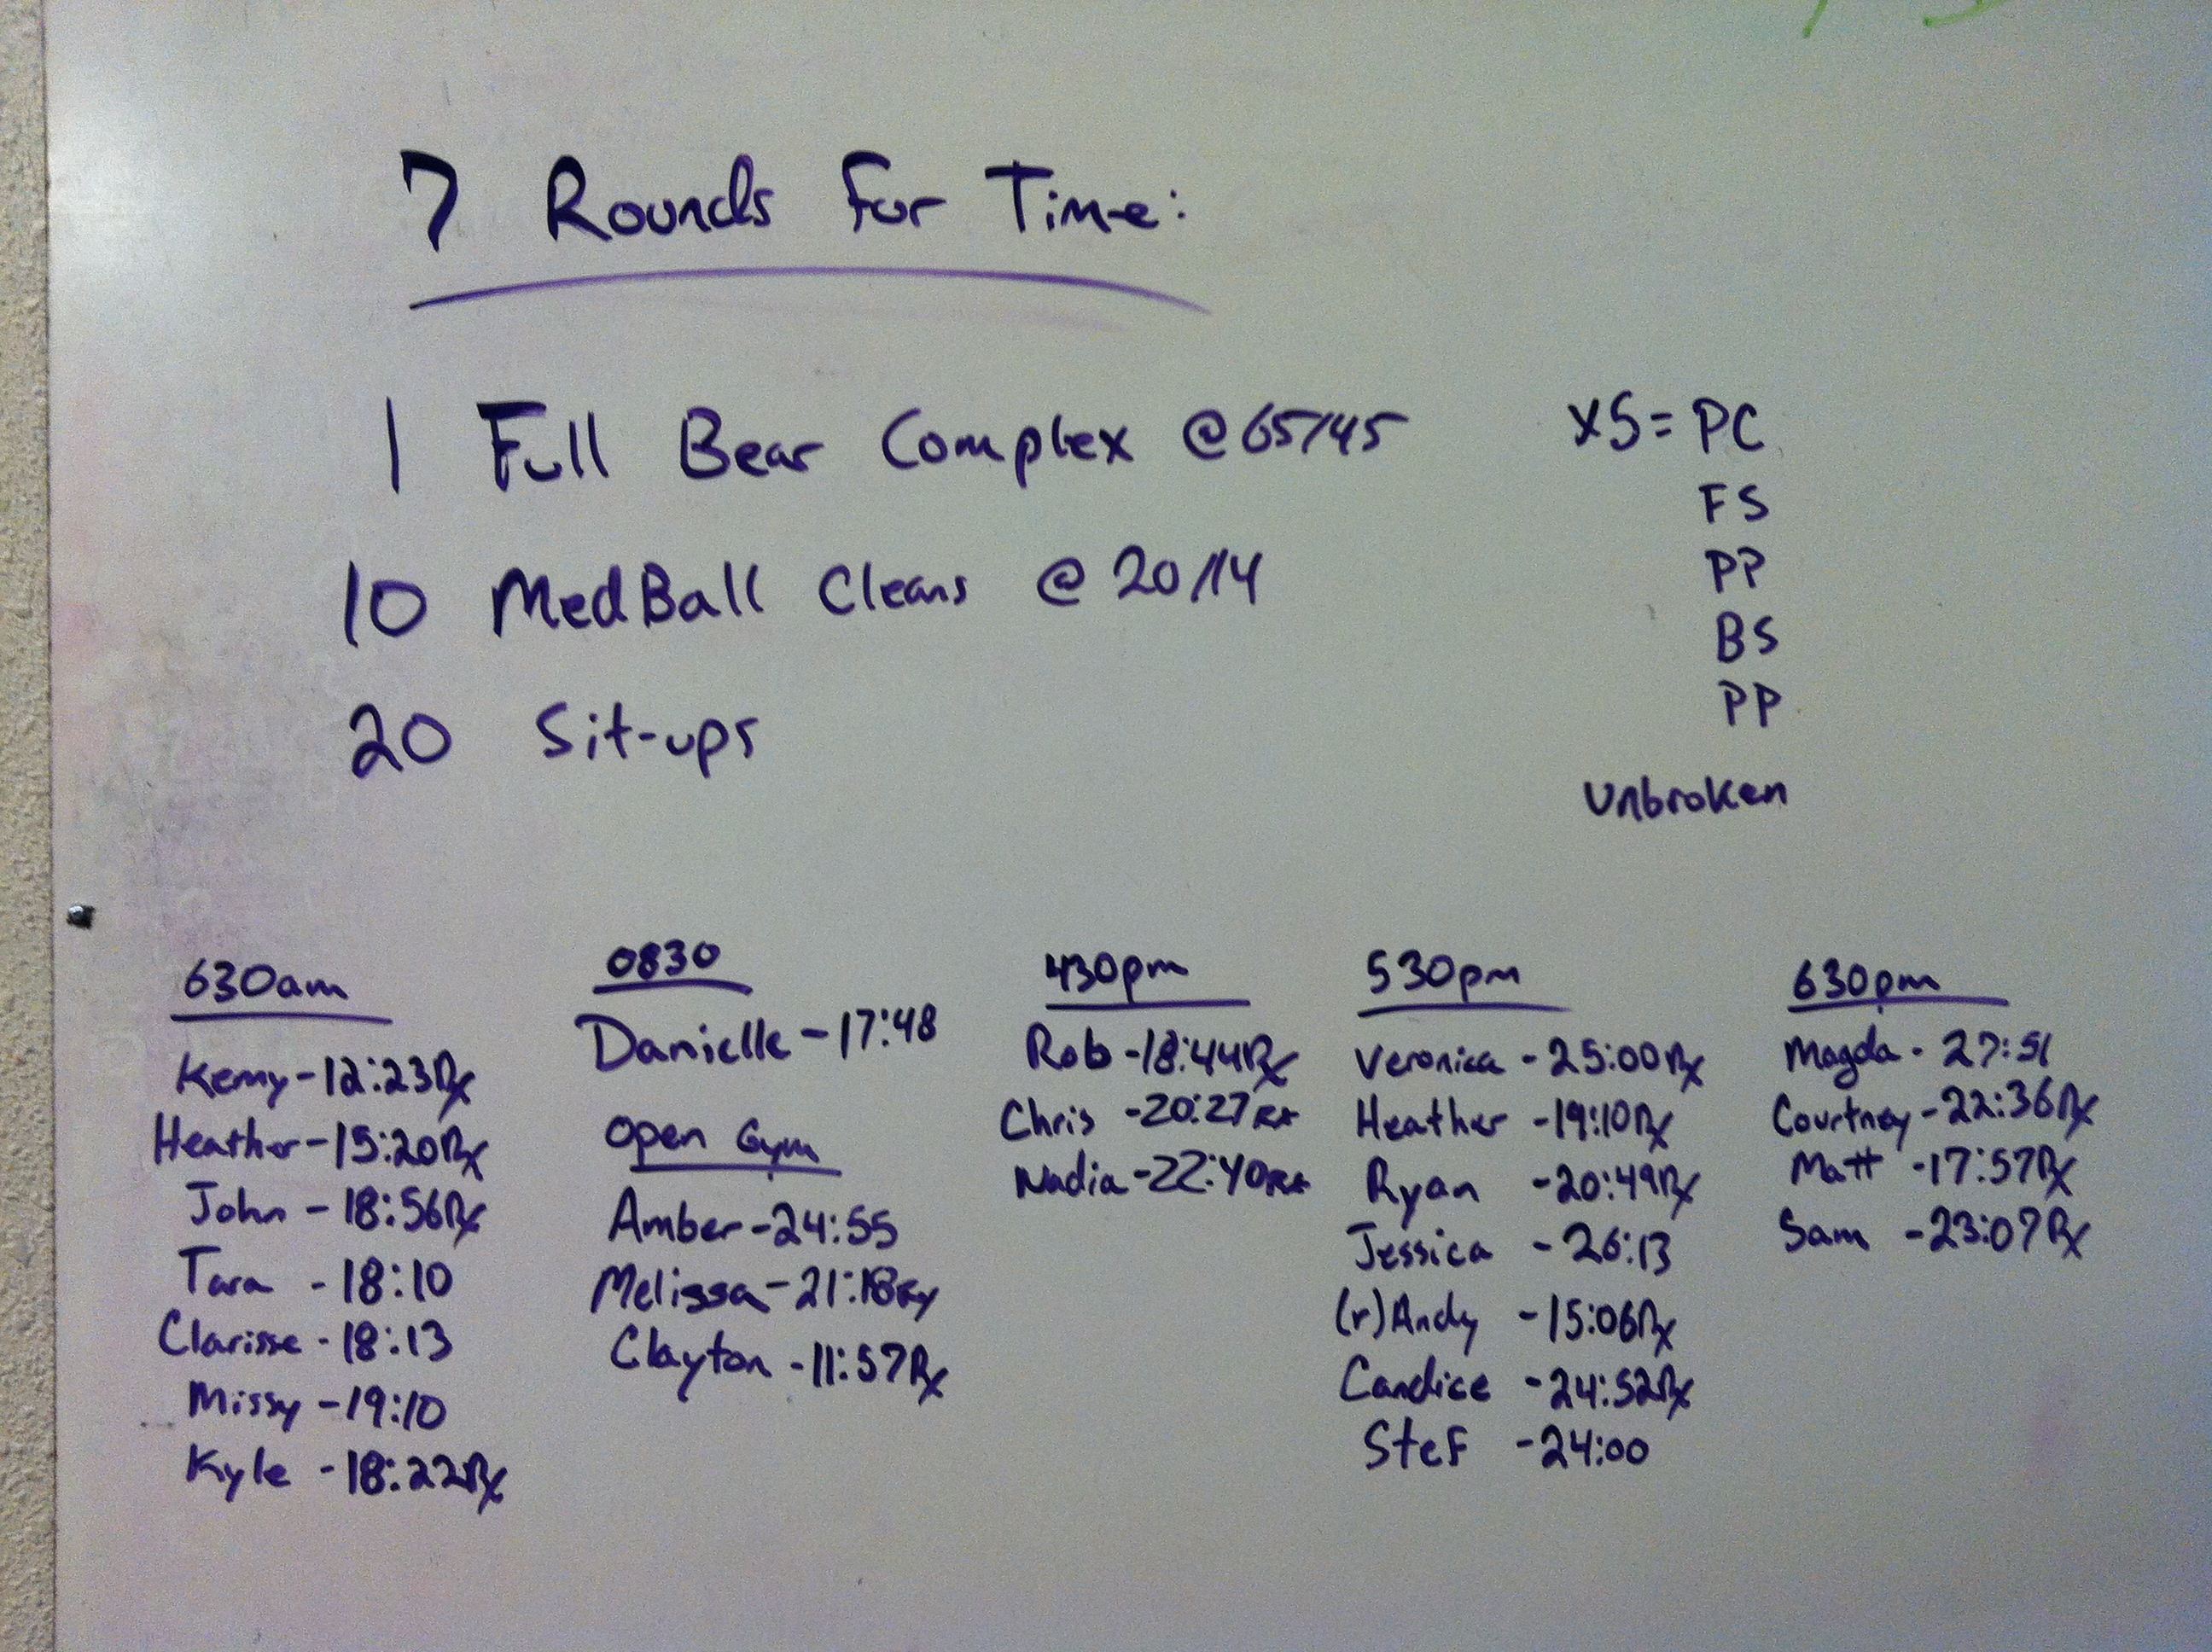 7 Rounds For Time:
1 Full Bear Complex @ 65/45
10 MedBall Cleans @ 20/14
20 Sit-ups
x5 = PC
FS
PP
BS
PP
Unbroken
630am
Kenny - 12:23 Rx
Heather - 15:20 Rx
John - 18:56 Rx
Tara - 18:10
Clarisse - 18:13
Missy - 19:10
Kyle - 18:22 Rx
0830
Danielle - 17:48
Open Gym
Amber - 24:55
Melissa - 21:18 Rx
Clayton - 11:57 Rx
430pm
Rob - 18:44 Rx
Chris - 20:27 Rx
Nadia - 22:40 Rx
530pm
Veronica - 25:00 Rx
Heather - 19:10 Rx
Ryan - 20:49 Rx
Jessica - 26:13
(r)Andy - 15:06 Rx
Candice - 24:52 Rx
Stef - 24:00
630pm
Magda - 27:51
Courtney - 22:36 Rx
Matt - 17:57 Rx
Sam - 23:07 Rx